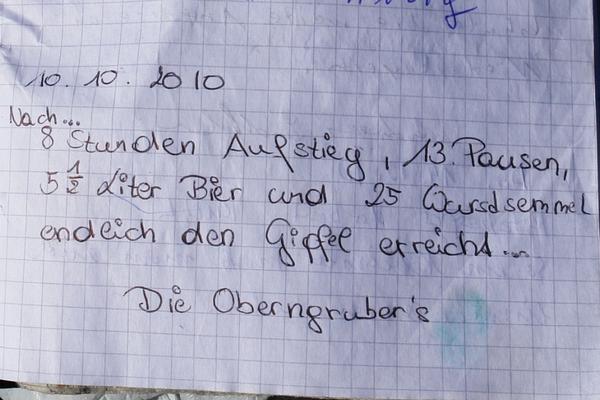 10. 10. 2010
Nach...
8 Stunden Aufstieg, 13. Pausen,
5 1/2 Liter Bier und 25 Wurstsemmel
endlich den Gipfel erreicht...
Die Oberngruber's